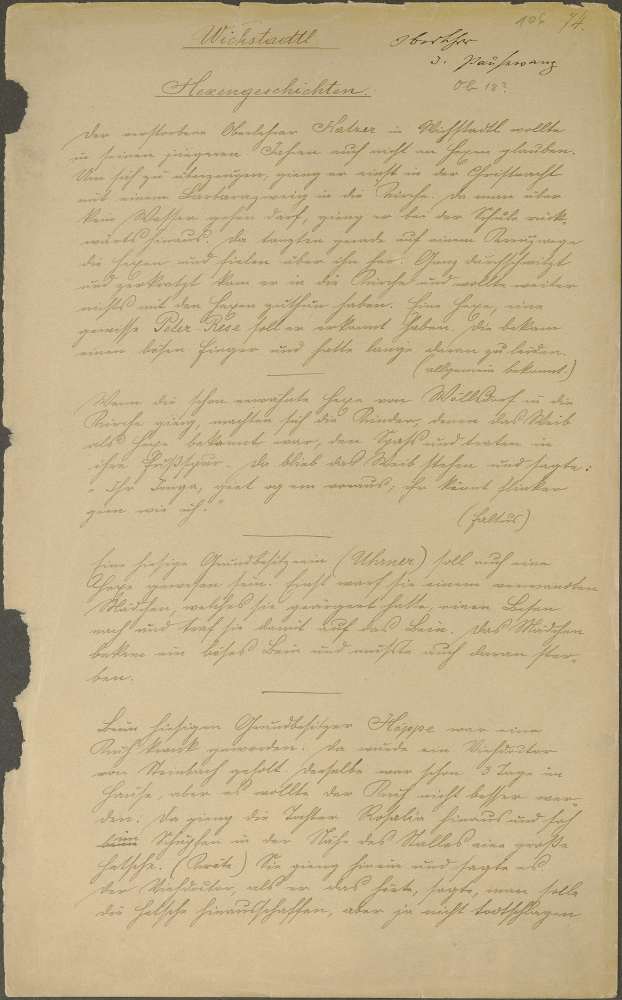 106 74.
Wichstadtl
Oberlehrer
J. Pausewang
Hexengeschichten.
Der verstorbene Oberlehrer Katzer in Wichstadtl wollte
in seinen jüngeren Jahren auch nicht an Hexen glauben.
Um sich zu überzeugen, gieng er einst in der Christnacht
mit einem Barbarazweig in die Kirche. Da man über
kein Wasser gehen darf, gieng er bei der Schule rück-
wärts hinaus. Da tanzten gerade auf einem Kreuzwege
die Hexen und fielen über ihn her. Ganz durchschwitzt
und zerkratzt kam er in die Kirche und wollte weiter
nichts mit den Hexen zuthun haben. Eine Hexe, eine
gewisse Peter Rese soll er erkannt haben. Die bekam
einen bösen Finger und hatte lange daran zu leiden.
(allgemein bekannt.)
Wenn die schon erwähnte Hexe von Wöllsdorf in die
Kirche gieng, machten sich die Kinder, denen das Weib
als Hexe bekannt war, den Spaß und traten in
ihre Fußspur. Da blieb das Weib stehen und sagte:
"Ihr Jonga, giet og em voraus, ihr kinnt flinker
giehn wie ich."
(Faltus)
Eine hiesige Grundbesitzerin (Uhrner) soll auch eine
Hexe gewesen sein. Einst warf sie einem verwandten
Mädchen, welches sie geärgert hatte, einen Besen
nach und traf sie damit auf das Bein. Das Mädchen
bekam ein böses Bein und mußte auch daran ster-
ben.
Beim hiesigen Grundbesitzer Hoppe war eine
Kuh krank geworden. Da wurde ein Viehdoctor
von Steinbach geholt. Derselbe war schon 3 Tage im
Hause, aber es wollte der Kuh nicht besser wer-
den. Da gieng die Tochter Rosalia hinaus und sah
beim Schupfen in der Nähe des Stalles eine große
Hetsche. (Kröte) Sie gieng hinein und sagte es.
Der Viehdoctor, als er das hörte, sagte, man solle
die Hetsche hinausschaffen, aber ja nicht todtschlagen